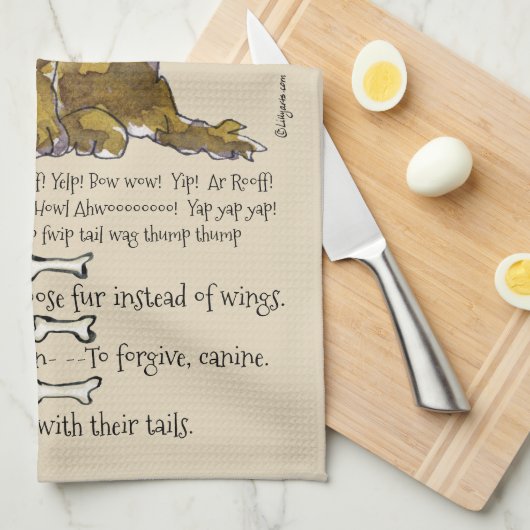 ©Lillyarts.com
Yelp! Bow wow! Yip! Ar Rooff!
Howl Ahwoooooooo! Yap yap yap!
fwip tail wag thump thump
fur instead of wings.
---To forgive, canine.
with their tails.